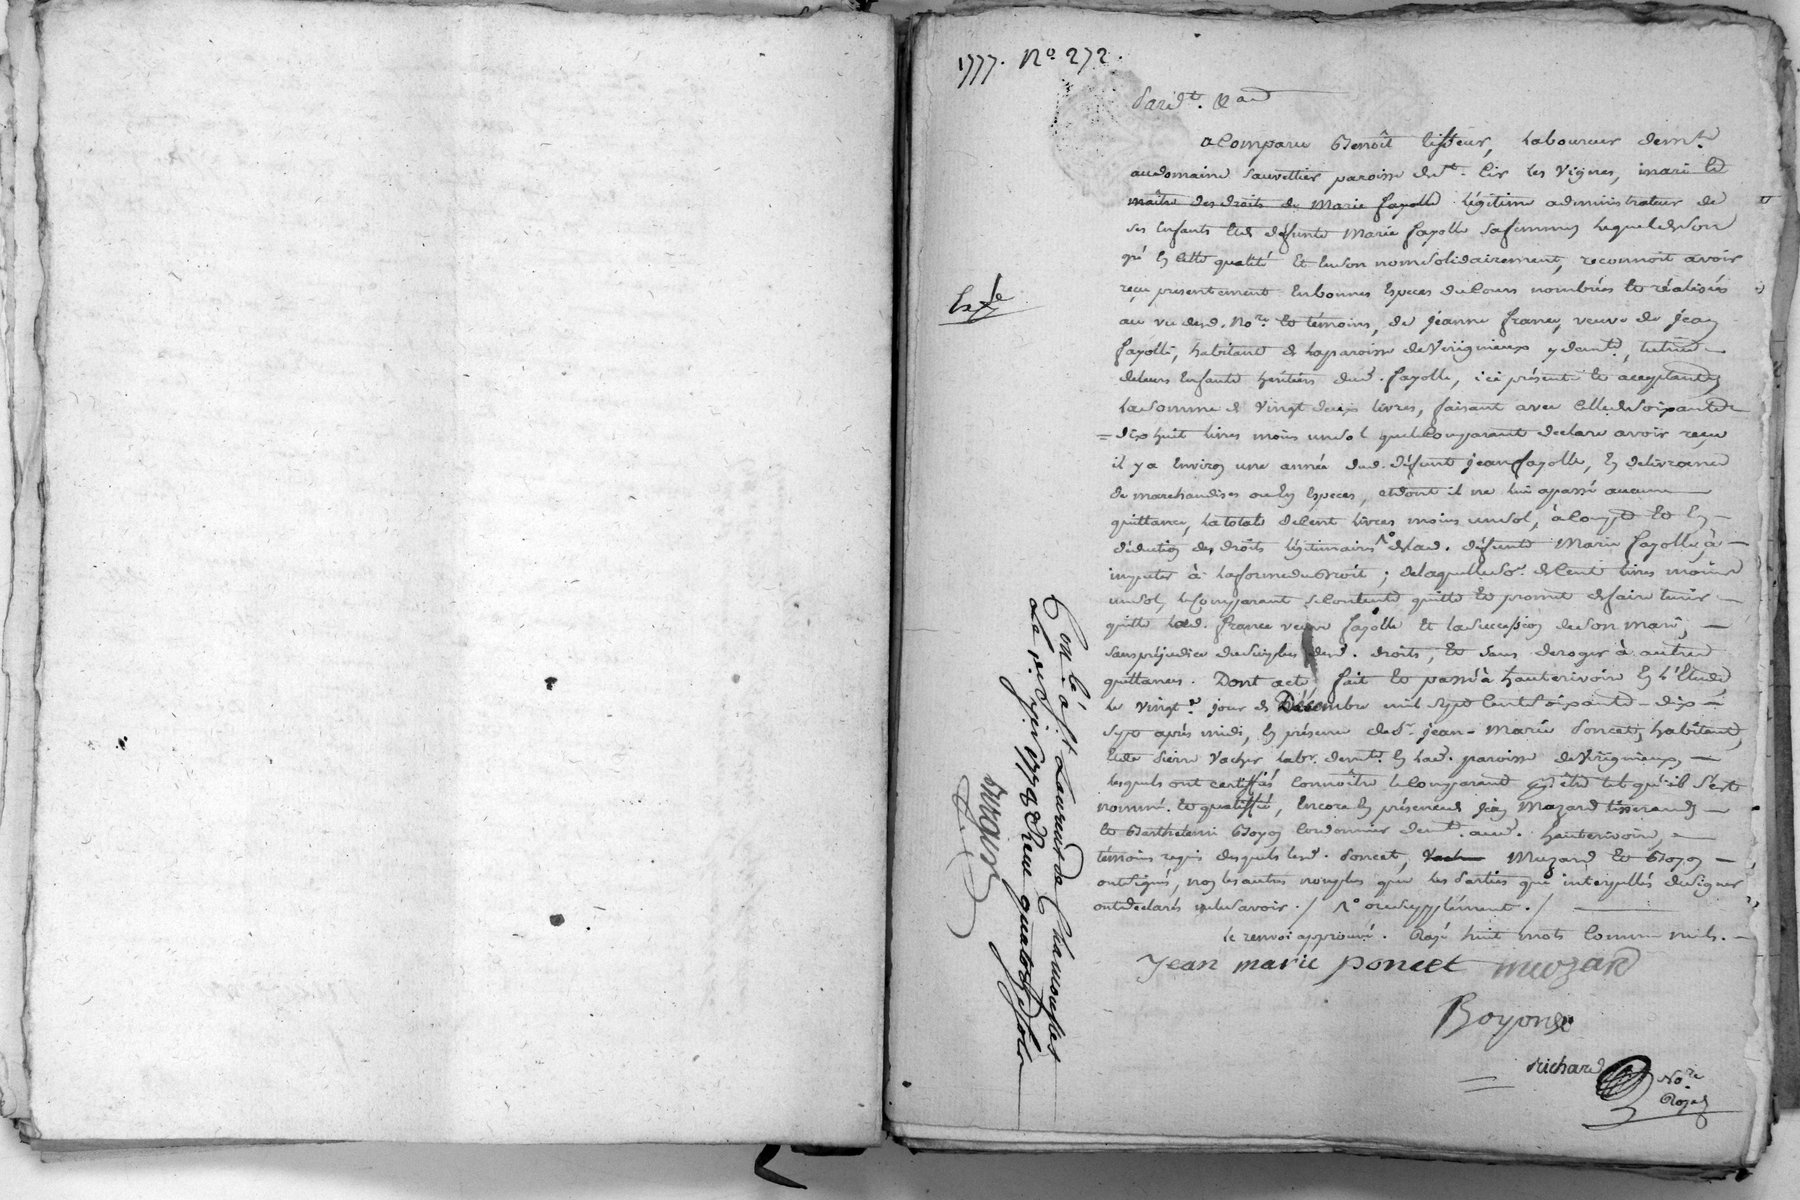 1777. No. 272.
Pard.t &a
a Comparu Benoît tisseur, Laboureur demt.
au domaine Sauvettier paroisse de St. Cir les Vignes, mari et
maître des droits de Marie fayolle légitime administrateur de
ses Enfants et de défunte Marie fayolle sa femme, lequel de son
gré En cette qualité Et En son nom solidairement, reconnoit avoir
reçu presentement En bonnes Especes du Cours nombrées Et réalisées
au vu desd. Nore. Et témoins, de jeanne france, veuve de jean
fayolle, habitant de la paroisse de Virigneux y demte, tutrice
de leurs Enfants heritiers dud. fayolle, ici présente Et acceptante,
La Somme de Vingt deux livres, faisant avec celle de soixante
= dix huit livres moins un sol que le Comparant declare avoir reçu
il y a Environ une année dud. défunt jean fayolle, En delivrance
de marchandises ou En Especes, et dont il ne lui a passé aucune
quittance, la totale de Cent livres moins un sol, à Compte Et En
déduction des droits légitimaires de lad. défunte Marie fayolle, à
imputer à la forme du Droit ; de laquelle So. de Cent livres moins
un sol, le Comparant se Contente quitte Et promet de faire tenir
quitte lad. france veuve fayolle Et la succession de son mari,
sans préjudice du surplus desd. droits, Et sans deroger à autres
quittances. Dont acte fait Et passé à hauterivoire En l'Etude
le Vingte. jour de Décembre mil Sept Cent Soixante-dix
Sept après midi, En présence de Sr. jean-Marie Poncet, habitant,
Et de Pierre Vacher labr. demt. En lad. paroisse de Virigneux,
lesquels ont certiffiés Connoître le Comparant Et être tel qu'il s'est
nommé Et qualiffié, Encore En présence de jean Muzard tisserand
Et Barthelemi Boyon Cordonnier demt. aud. hauterivoire,
témoins requis desquels lesd. Poncet, Muzard Et Boyon
ont Signés, non les autres non plus que les Parties qui interpellés de signer
ont declarés ne le savoir ./ ou supplément ./
le renvoi approuvé. Rayé huit mots Comme nuls.
Jean marie poncet muzard
Boyon
Richard
Nore
Royal
Con.lé à St Laurent de Chamousset
Le 1778 Reçu quatorze sols